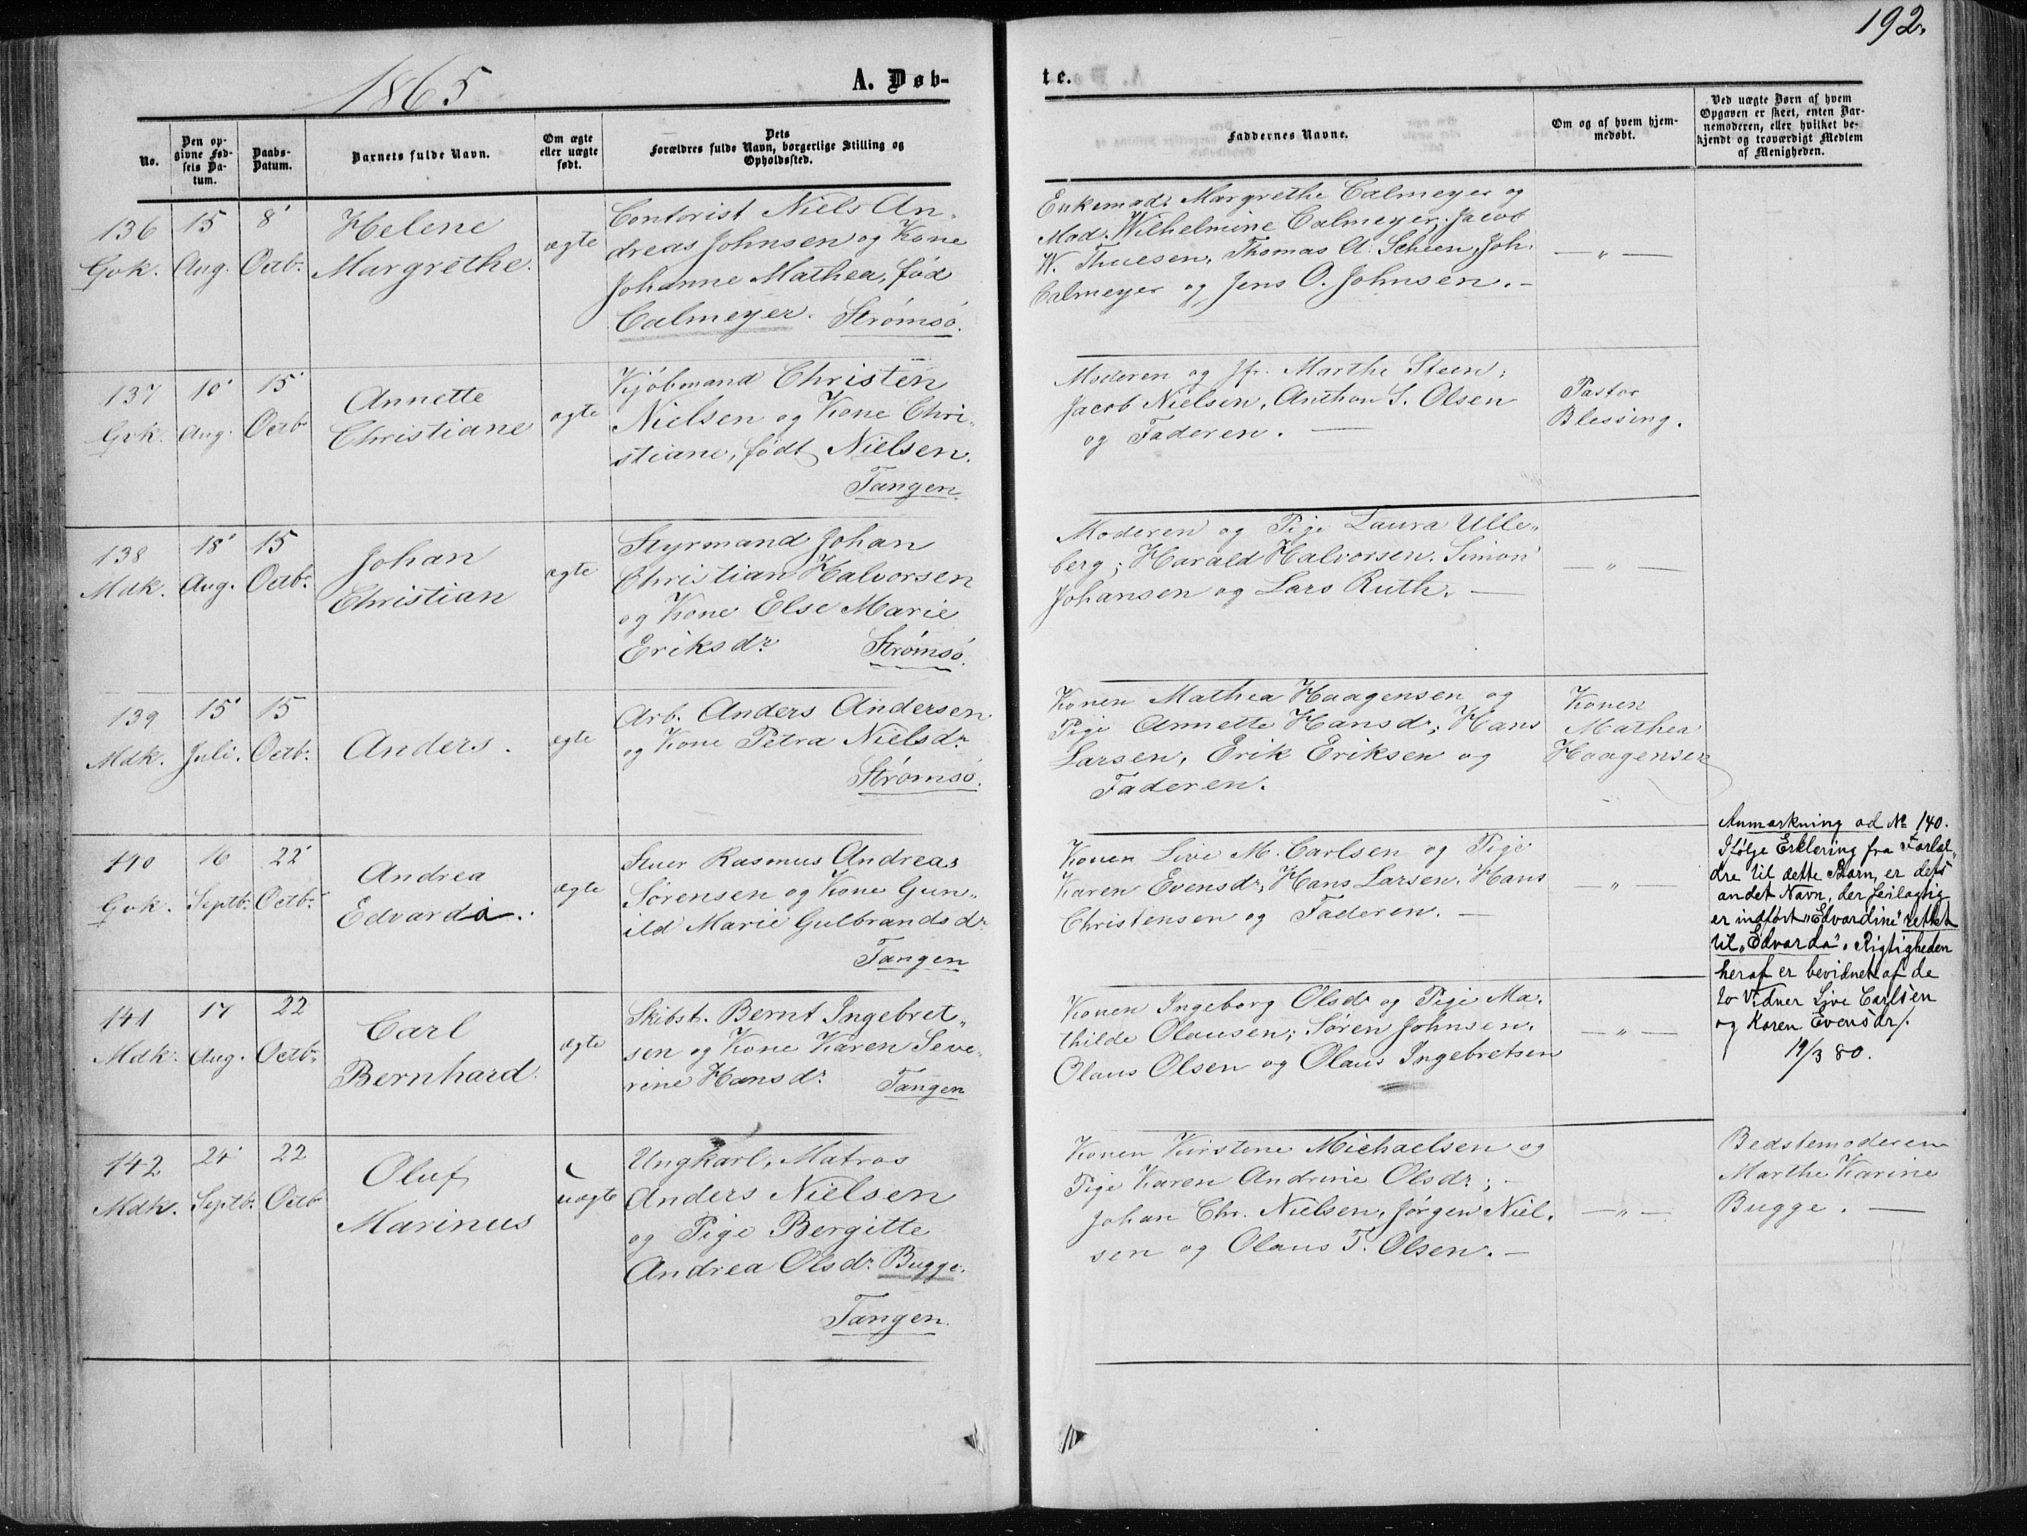 192.
1865
A. Døb-
te.
No.
Den op-
givne Fød-
sels Da-
tum.
Daabs-
Datum.
Barnets fulde Navn.
Om ægte
eller uægte
født.
Dets
Forældres fulde Navn, borgerlige Stilling og
Opholdssted.
Faddernes Navne.
Om og af hvem hjem-
medøbt.
Ved uægte Børn af hvem
Opgaven er skeet, enten Bar-
nemoderen, eller hvilket be-
kjendt og troværdigt Medlem
af Menigheden.
136
Gvk.
15
Aug.
8'
Octb.
Helene
Margrethe.
ægte
Contorist Niels An-
dreas Johnsen og Kone
Johanne Mathea, fød
Calmeyer. Strømsö.
Enkemad: Margrethe Calmeyer og
Mad. Wilhelmine Calmeyer; Jacob
W. Thuesen, Thomas A. Scheen, Joh.
Calmeyer og Jens O. Johnsen. –
— „ —
137
Gvk.
10'
Aug.
15'
Octb.
Annette
Christiane
ægte
Kjöbmand Christen
Nielsen og Kone Chri-
stiane, født Nielsen.
Tangen.
Moderen og Jfr. Marthe Steen;
Jacob Nielsen, Anthon S. Olsen
og Faderen. —
Pastor
Blessing.
138
Mdk.
18'
Aug.
15
Octbr.
Johan
Christian
ægte
Styrmand Johan
Christian Halvorsen
og Kone Else Marie
Eriksdr. Strømsö.
Moderen og Pige Laura Ulle-
berg; Harald Halvorsen, Simon
Johansen og Lars Ruth. —
— „ —
139
Mdk.
15'
Juli.
15
Octbr.
Anders.
ægte
Arb. Anders Andersen
og Kone Petra Nielsdr.
Strømsö.
Konen Mathea Haagensen og
Pige Annette Hansdr; Hans
Larsen, Erik Eriksen og
Faderen.
Konen
Mathea
Haagensen
140
Gvk.
16
Septbr.
22'
Octbr.
Andrea
Edvarda.
ægte
Stuer Rasmus Andreas
Sørensen og Kone Gun-
ild Marie Gulbrandsdr.
Tangen
Konen Live M. Carlsen og Pige
Karen Evensdr, Hans Larsen, Hans
Christensen og Faderen. —
— „ —
Anmærkning ad No 140.
Ifølge Erklering fra Foræl-
dre til dette Barn, er dets
andet Navn, der feilagtig
er indført „Edvardine" rettet
til „Edvarda". Rigtigheden
heraf er bevidnet af de
to Vidner Live Carlsen
og Karen Evensdr.
19/3 80.
141
Mdk.
17
Aug.
22
Octbr.
Carl
Bernhard.
ægte
Skibst. Bernt Ingebret-
sen og Kone Karen Seve-
rine Hansdr. Tangen
Konen Ingeborg Olsdr og Pige Ma-
thilde Olausen; Søren Johnsen,
Olaus Olsen og Olaus Ingebretsen
— „ —
142
Mdk.
24'
Septbr.
22
Octb
Oluf
Marinus
uægte
Ungkarl, Matros
Anders Nielsen
og Pige Bergitte
Andrea Olsdr. Bugge.
Tangen.
Konen Kirstine Michaelsen og
Pige Karen Andrine Olsdr; —
Johan Chr. Nielsen, Jørgen Niel-
sen og Olaus T. Olsen. —
— „ —
Bedstemoderen
Marthe Karine
Bugge. —